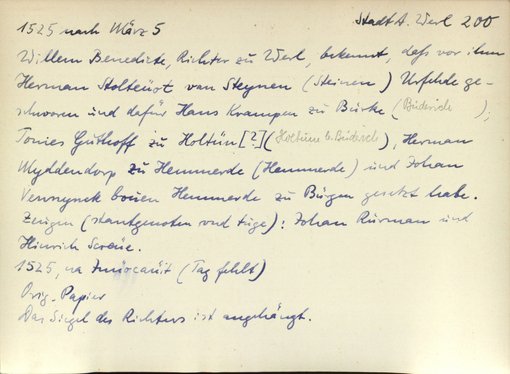 1525 nach März 5
Stadt A. Werl 200
Willem Benedicte, Richter zu Werl, bekennt, daß vor ihm
Herman Stolteuot van Steynen (Steinen) Urfehde ge-
schworen und dafür Hans Krampen zu Burke (Büderich),
Tonies Guthoff zu Holtün [?] (Holtum b. Büderich), Herman
Myddendorp zu Hemmerde (Hemmerde) und Johan
bouen Hemmerde zu Bürgen gesetzt habe.
Zeugen (stantgenoten vnd tüge): Johan Rurman und
Hinrich
1525, na Inuocauit (Tag fehlt)
Orig. Papier
Das Siegel des Richters ist angehängt.